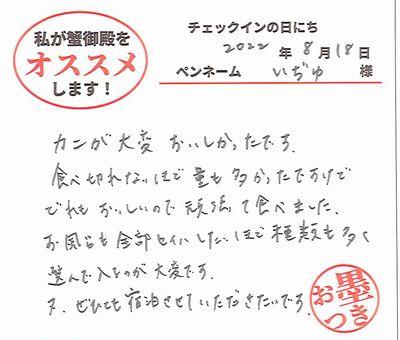 私が蟹御殿を
オススメ
します！
チェックインの日にち
2022 年 8 月 18 日
ペンネーム いぢゅ 様
カニが大変 おいしかったです。
食べ切れないほど量も多かったですけど
どれもおいしいので頑張って食べました。
お風呂も全部セイハしたいほど種類も多く
選んで入るのが大変です。
又、ぜひとも宿泊させていただきたいです。
お墨
つき